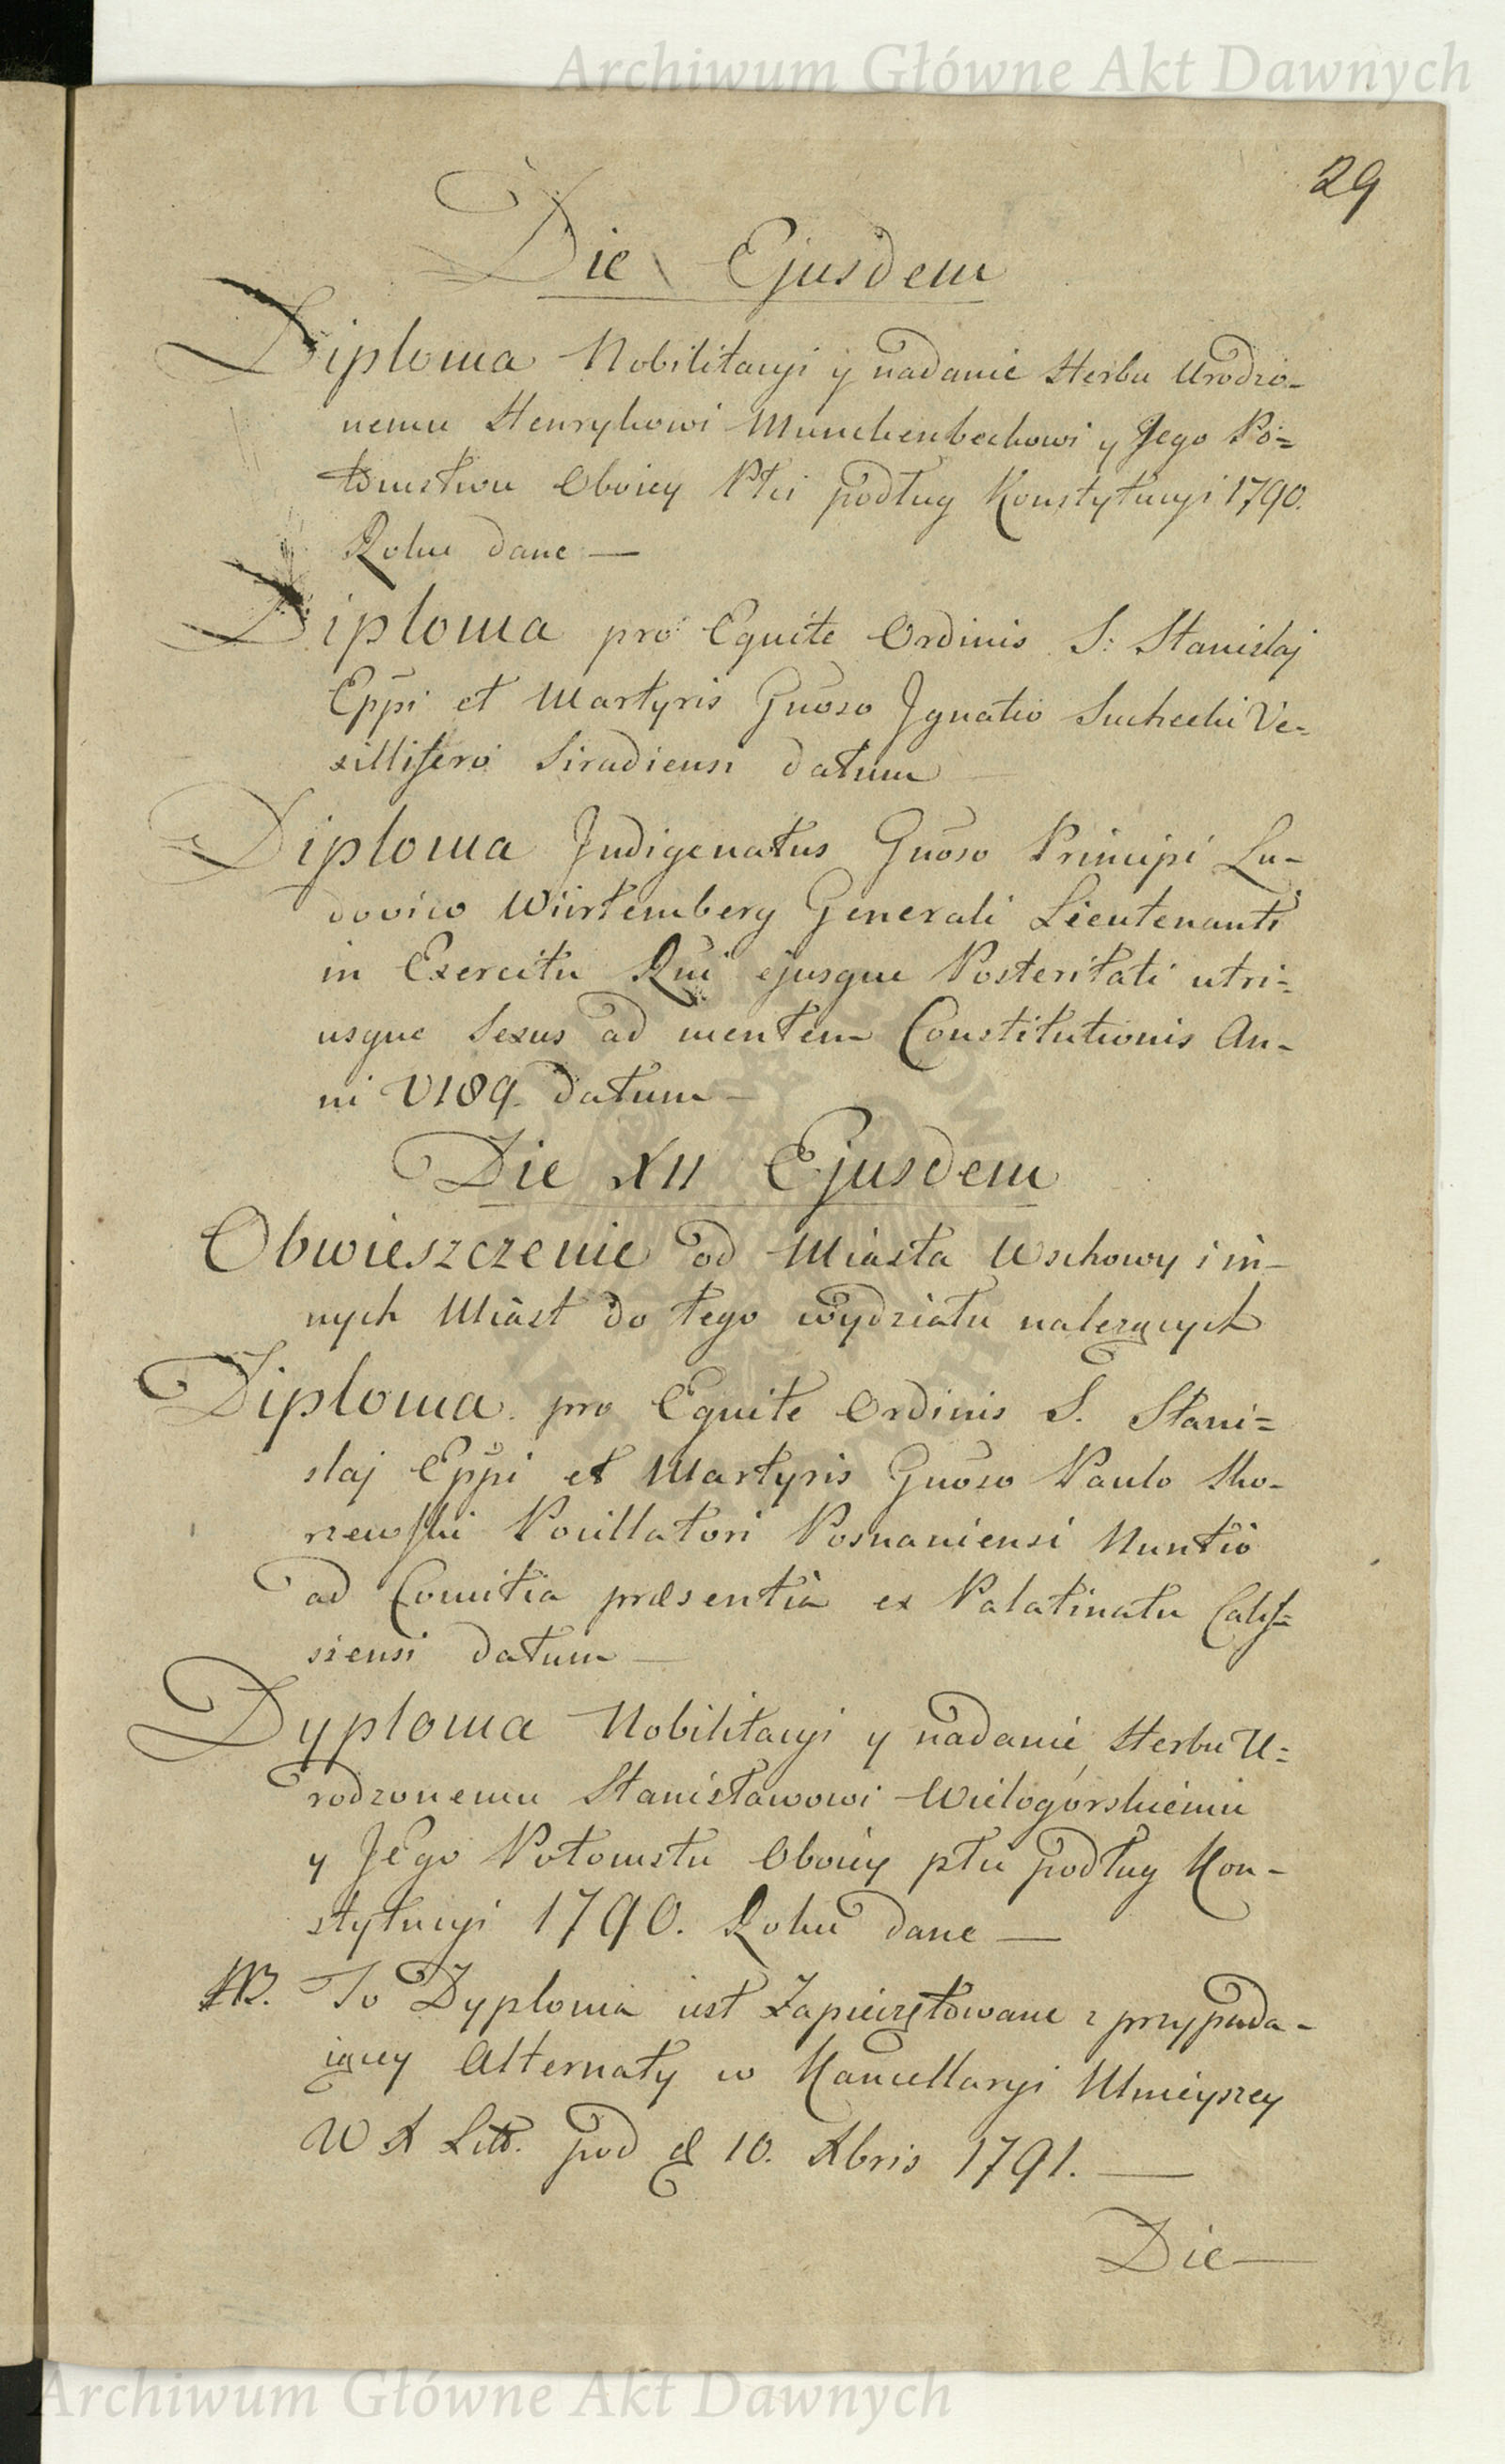 Archiwum Główne Akt Dawnych
29
Die Ejusdem
Diploma Nobilitacyi y nadanie Herbu Urodzo-
nemu Henrykowi Munckenbeckowi y Jego Po=
tomstwu Oboiey Płci podług Konstytucyi 1790.
Roku dane —
Diploma pro Equite Ordinis S: Stanislaj
Eppi et Martyris Gnoso Ignatio Suchecki Ve=
xillifero Siradiensi datum
Diploma Indigenatus Gnoso Principi Lu-
dovico Würtemberg Generali Lieutenanti
in Exercitu Rui ejusque Posteritati utri=
usque Sexus ad mentem Constitutionis An-
ni V189. datum —
Die XII Ejusdem
Obwieszczenie od Miasta Wschowy i in-
nych Miast do tego wydziału należących
Diploma pro Equite Ordinis S. Stani=
slaj Eppi et Martyris Gnoso Paulo Sko-
rzewski Pocillatori Posnaniensi Nuntio
ad Comitia præsentia ex Palatinatu Calis=
siensi datum —
Dyploma Nobilitacyi y nadanie Herbu U=
rodzonemu Stanisławowi Wielogórskiemu
y JEgo Potomstu Oboiey płci podług Kon-
stytucyi 1790. Roku dane —
NB. To Dyploma iest Zapieczętowane z przypada-
iącey Alternaty w Kancellaryi Mnieyszey
W X Litt. pod d 10. Xbris 1791. —
Die —
Archiwum Główne Akt Dawnych